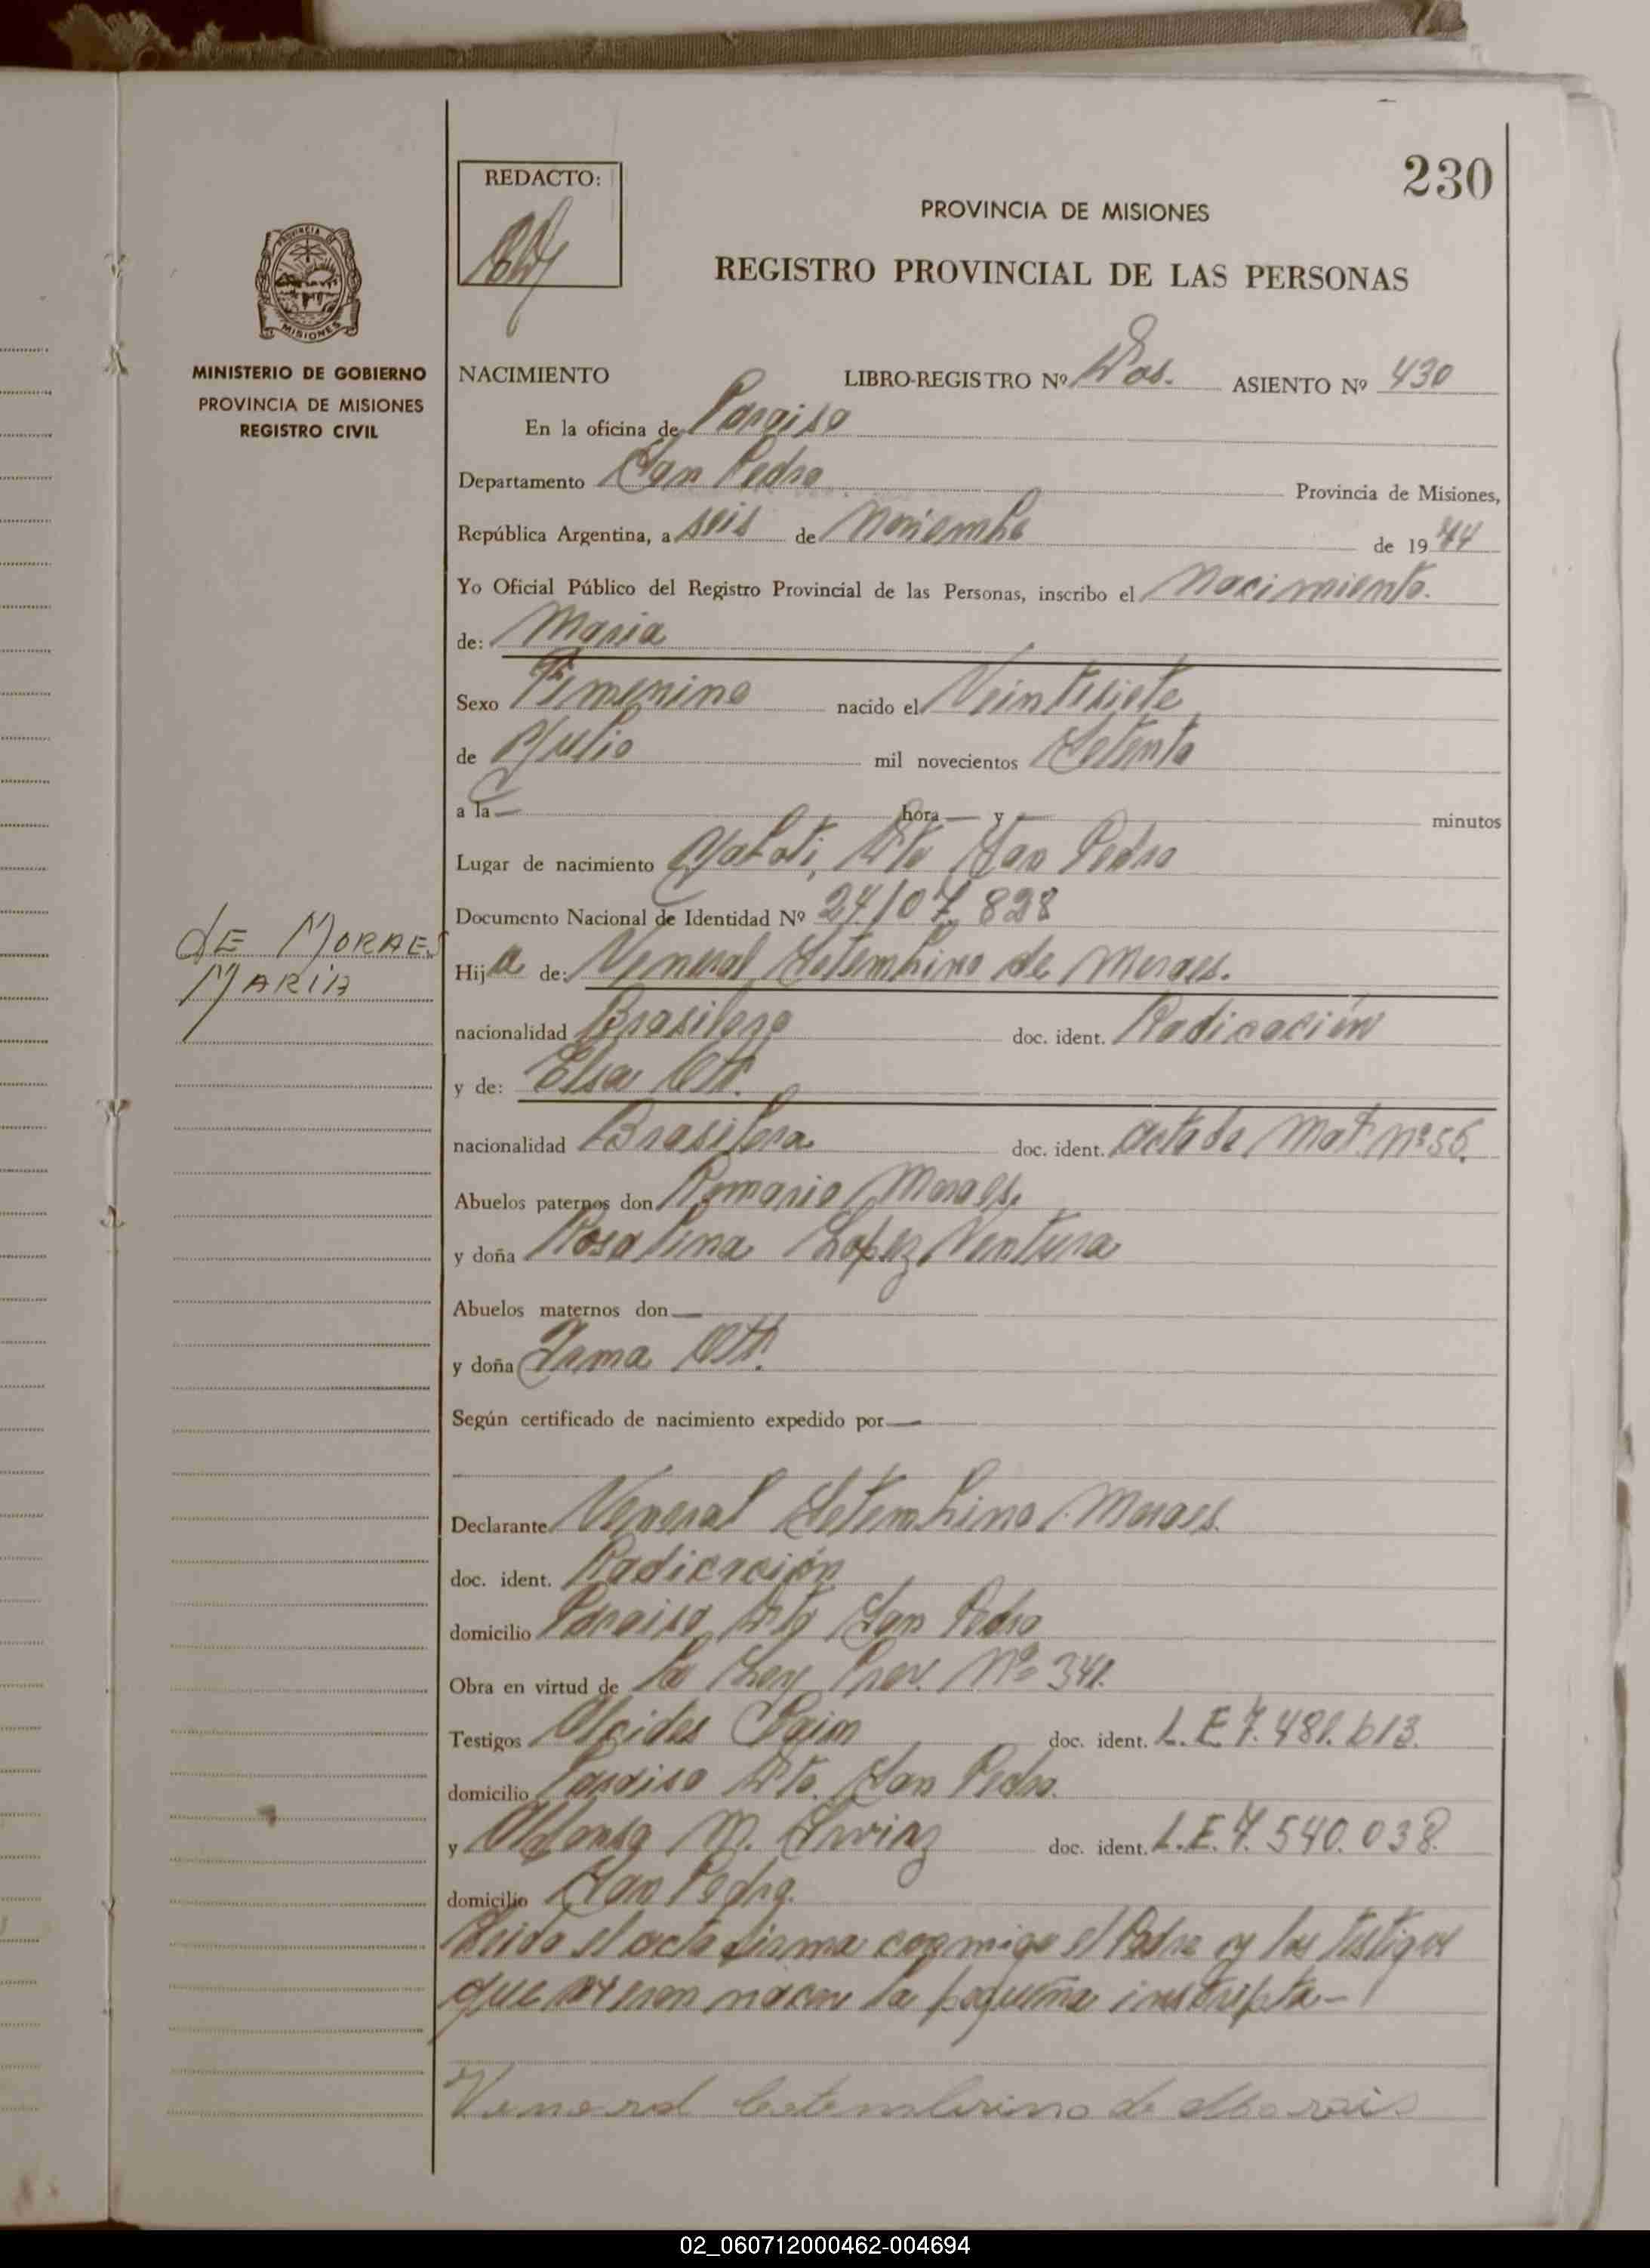 230
REDACTO:
PROVINCIA DE MISIONES
REGISTRO PROVINCIAL DE LAS PERSONAS
PROVINCIA DE
MISIONES
MINISTERIO DE GOBIERNO
PROVINCIA DE MISIONES
REGISTRO CIVIL
NACIMIENTO LIBRO-REGISTRO Nº Dos. ASIENTO Nº 430
En la oficina de Paraiso
Departamento San Pedro Provincia de Misiones,
República Argentina, a seis de Noviembre de 1974
Yo Oficial Público del Registro Provincial de las Personas, inscribo el Nacimiento.
de: Maria
Sexo Femenino nacido el Veintisiete
de Julio mil novecientos Setenta
a la — hora — y — minutos
Lugar de nacimiento Yaboti, Dto San Pedro
Documento Nacional de Identidad Nº 24/07.828
DE MORAES
MARÍA
Hija de: Veneral Setembrino de Moraes.
nacionalidad Brasilera doc. ident. Radicación
y de: Elsa Ott.
nacionalidad Brasilera doc. ident. acta de Mat. nº 56.
Abuelos paternos don Romario Moraes.
y doña Rosalina Lopez Ventura
Abuelos maternos don —
y doña Irma Ott.
Según certificado de nacimiento expedido por —
Declarante Veneral Setembrino Moraes.
doc. ident. Radicación
domicilio Paraiso Dto San Pedro
Obra en virtud de la Ley Prov. Nº 341.
Testigos Alcides doc. ident. L.E 7.481.613.
domicilio Paraiso Dto. San Pedro.
y Alfonso M. doc. ident. L.E. 7.540.038.
domicilio San Pedro.
Leido el acta firma conmigo el Padre y los testigos
que vieron nacer la pequeña inscripta-
Veneral Setembrino de Morais
02_060712000462-004694